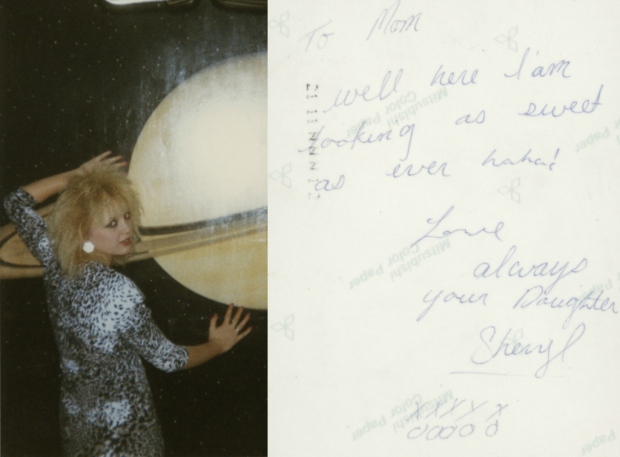 To Mom
well here I am
looking as sweet
as ever haha!
Love
always
your Daughter
Sheryl
XXXXX
OOOOO
Mitsubishi
Color Paper
Mitsubishi
Color Paper
Mitsubishi
Color Paper